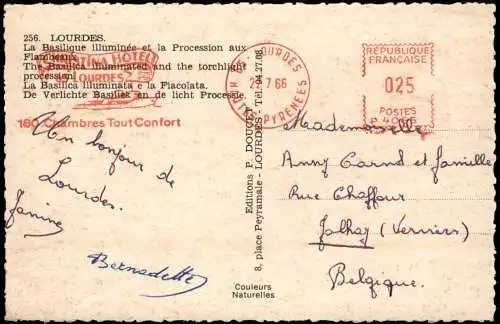 256. LOURDES.
La Basilique illuminée et la Procession aux
Flambeaux.
The Basilica illuminated and the torchlight
procession.
La Basilica illuminata e la Fiacolata.
De Verlichte Basiliek an de licht Processie.
HOTEL
LOURDES
160 Chambres Tout Confort
LOURDES
7 66
HTES PYRENEES
RÉPUBLIQUE
FRANÇAISE
025
POSTES
Editions P. DOUCET
8, place Peyramale - LOURDES - Tél. 94.27.08
Couleurs
Naturelles
Un bonjour de
Lourdes.
Janine
Bernadette
Mademoiselle
Anny Carnol et famille
Rue Chaffour
Jalhay (Verviers)
Belgique.